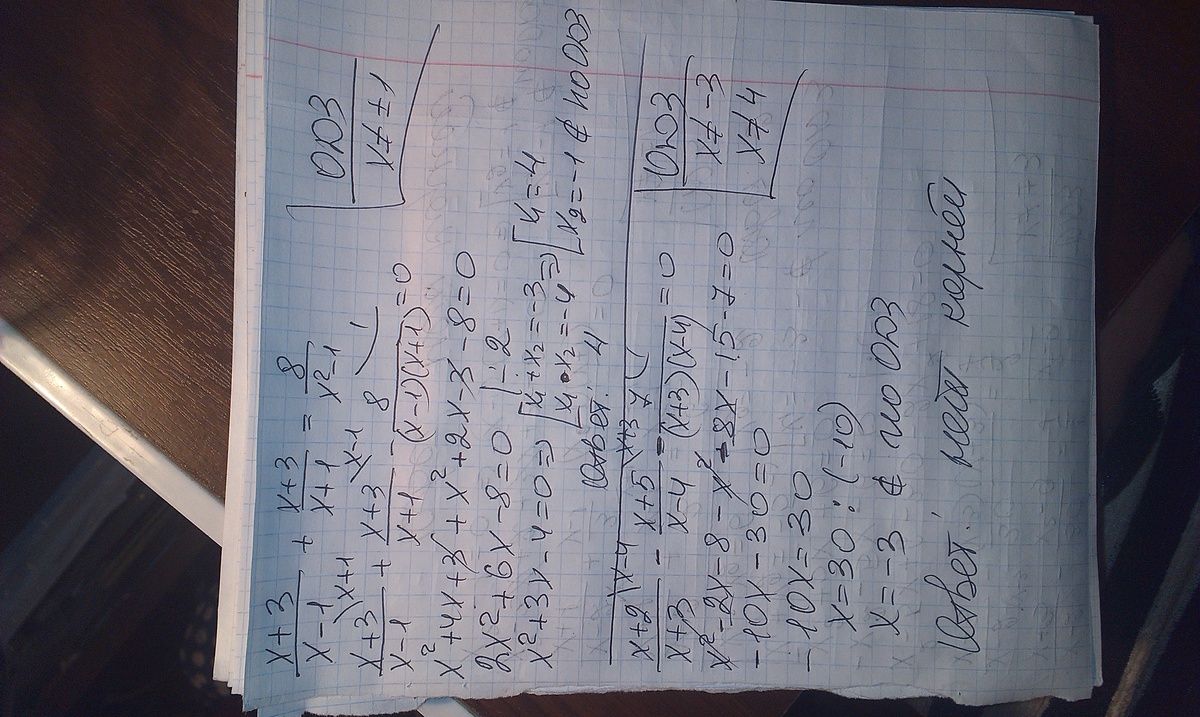 x+3/x-1 + x+3/x+1 = 8/x²-1
ОДЗ
x≠±1
x+3\x+1/x-1 + x+3\x-1/x+1 - 8\1/(x-1)(x+1) = 0
x²+4x+3+x²+2x-3-8=0
2x²+6x-8=0 |:2
x²+3x-4=0 => [x₁+x₂=-3 => [x₁=4
[x₁•x₂=-4 [x₂=-1 ∉ по ОДЗ
Ответ: 4
x+2\x-4/x+3 - x+5\x+3/x-4 = 7/(x+3)(x-4) = 0
ОДЗ
x≠-3
x≠4
x²-2x-8-x²-8x-15-7=0
-10x-30=0
-10x=30
x=30:(-10)
x=-3 ∉ по ОДЗ
Ответ: нет корней